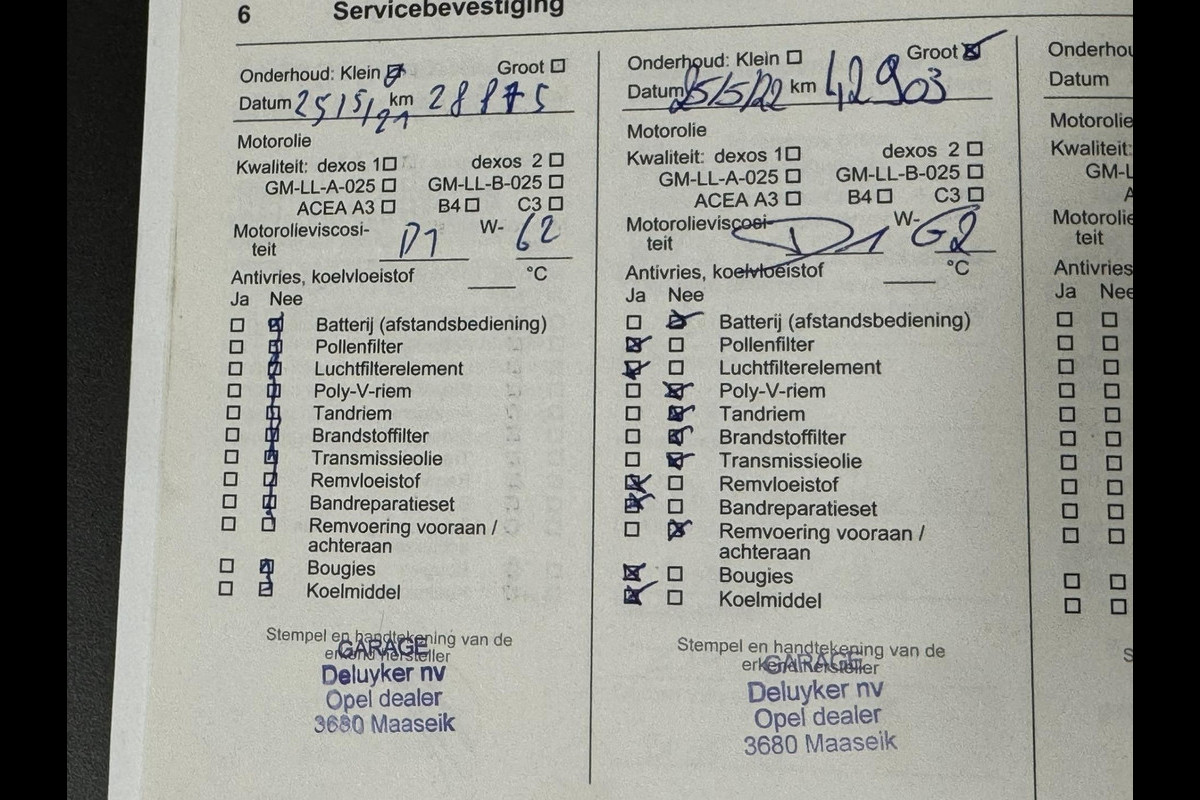 6 Servicebevestiging
Onderhoud: Klein Groot
Datum 25/5/21 km
Motorolie
Kwaliteit: dexos 1 dexos 2
GM-LL-A-025 GM-LL-B-025
ACEA A3 B4 C3
Motorolieviscosi-
teit D1 W- G2
Antivries, koelvloeistof °C
Ja Nee
Batterij (afstandsbediening)
Pollenfilter
Luchtfilterelement
Poly-V-riem
Tandriem
Brandstoffilter
Transmissieolie
Remvloeistof
Bandreparatieset
Remvoering vooraan /
achteraan
Bougies
Koelmiddel
Stempel en handtekening van de
erkend hersteller
GARAGE
Deluyker nv
Opel dealer
3680 Maaseik
Onderhoud: Klein Groot
Datum 25/5/22 km 42903
Motorolie
Kwaliteit: dexos 1 dexos 2
GM-LL-A-025 GM-LL-B-025
ACEA A3 B4 C3
Motorolieviscosi-
teit D1 W- G2
Antivries, koelvloeistof °C
Ja Nee
Batterij (afstandsbediening)
Pollenfilter
Luchtfilterelement
Poly-V-riem
Tandriem
Brandstoffilter
Transmissieolie
Remvloeistof
Bandreparatieset
Remvoering vooraan /
achteraan
Bougies
Koelmiddel
Stempel en handtekening van de
erkend hersteller
GARAGE
Deluyker nv
Opel dealer
3680 Maaseik
Onderhou
Datum
Motorolie
Kwaliteit:
GM-L
A
Motorolie
teit
Antivries
Ja Nee
S